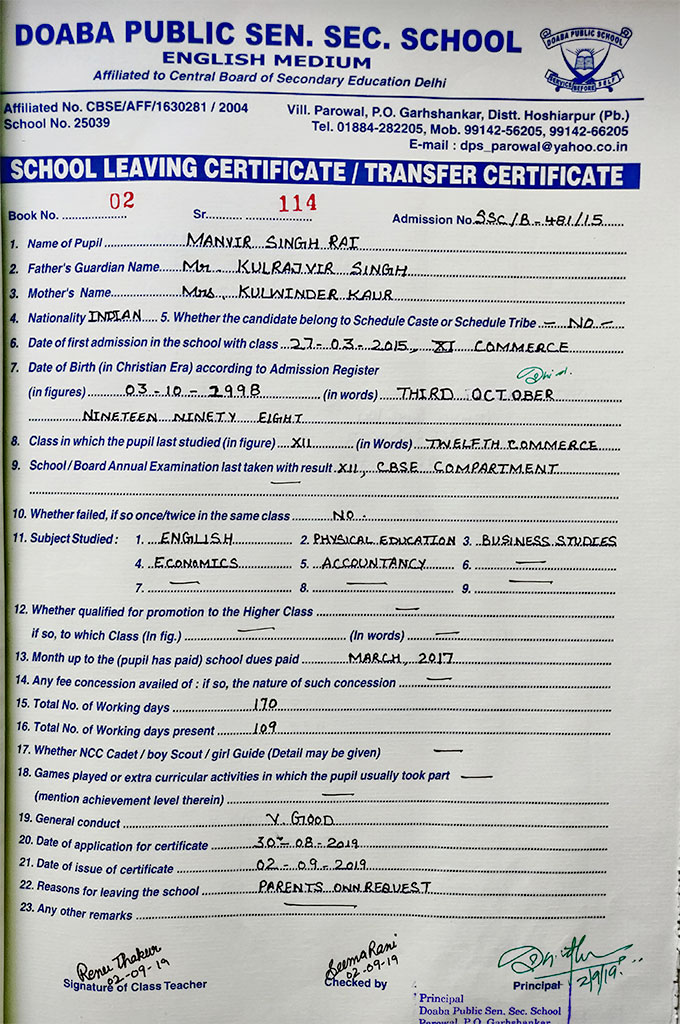 DOABA PUBLIC SEN. SEC. SCHOOL
ENGLISH MEDIUM
Affiliated to Central Board of Secondary Education Delhi
DOABA PUBLIC SCHOOL
SERVICE BEFORE SELF
Affiliated No. CBSE/AFF/1630281 / 2004
School No. 25039
Vill. Parowal, P.O. Garhshankar, Distt. Hoshiarpur (Pb.)
Tel. 01884-282205, Mob. 99142-56205, 99142-66205
E-mail : dps_parowal@yahoo.co.in
SCHOOL LEAVING CERTIFICATE / TRANSFER CERTIFICATE
Book No. 02 Sr. 114 Admission No. SSC/B-481/15
1. Name of Pupil MANVIR SINGH RAI
2. Father's Guardian Name Mr. KULRAJVIR SINGH
3. Mother's Name Mrs. KULWINDER KAUR
4. Nationality INDIAN 5. Whether the candidate belong to Schedule Caste or Schedule Tribe - NO -
6. Date of first admission in the school with class 27-03-2015, XI COMMERCE
7. Date of Birth (in Christian Era) according to Admission Register
(in figures) 03-10-1998 (in words) THIRD OCTOBER
NINETEEN NINETY EIGHT
8. Class in which the pupil last studied (in figure) XII (in Words) TWELFTH COMMERCE
9. School / Board Annual Examination last taken with result XII, CBSE COMPARTMENT
10. Whether failed, if so once/twice in the same class NO.
11. Subject Studied : 1. ENGLISH 2. PHYSICAL EDUCATION 3. BUSINESS STUDIES
4. ECONOMICS 5. ACCOUNTANCY 6. —
7. — 8. — 9. —
12. Whether qualified for promotion to the Higher Class —
if so, to which Class (In fig.) — (In words) —
13. Month up to the (pupil has paid) school dues paid MARCH, 2017
14. Any fee concession availed of : if so, the nature of such concession —
15. Total No. of Working days 170
16. Total No. of Working days present 109
17. Whether NCC Cadet / boy Scout / girl Guide (Detail may be given) —
18. Games played or extra curricular activities in which the pupil usually took part —
(mention achievement level therein) —
19. General conduct V. GOOD
20. Date of application for certificate 30-08-2019
21. Date of issue of certificate 02-09-2019
22. Reasons for leaving the school PARENTS OWN REQUEST
23. Any other remarks —
Renu Thakur
02-09-19
Signature of Class Teacher
Seema Rani
02-09-19
Checked by
2/9/19
Principal
Principal
Doaba Public Sen. Sec. School
Parowal, P.O. Garhshankar